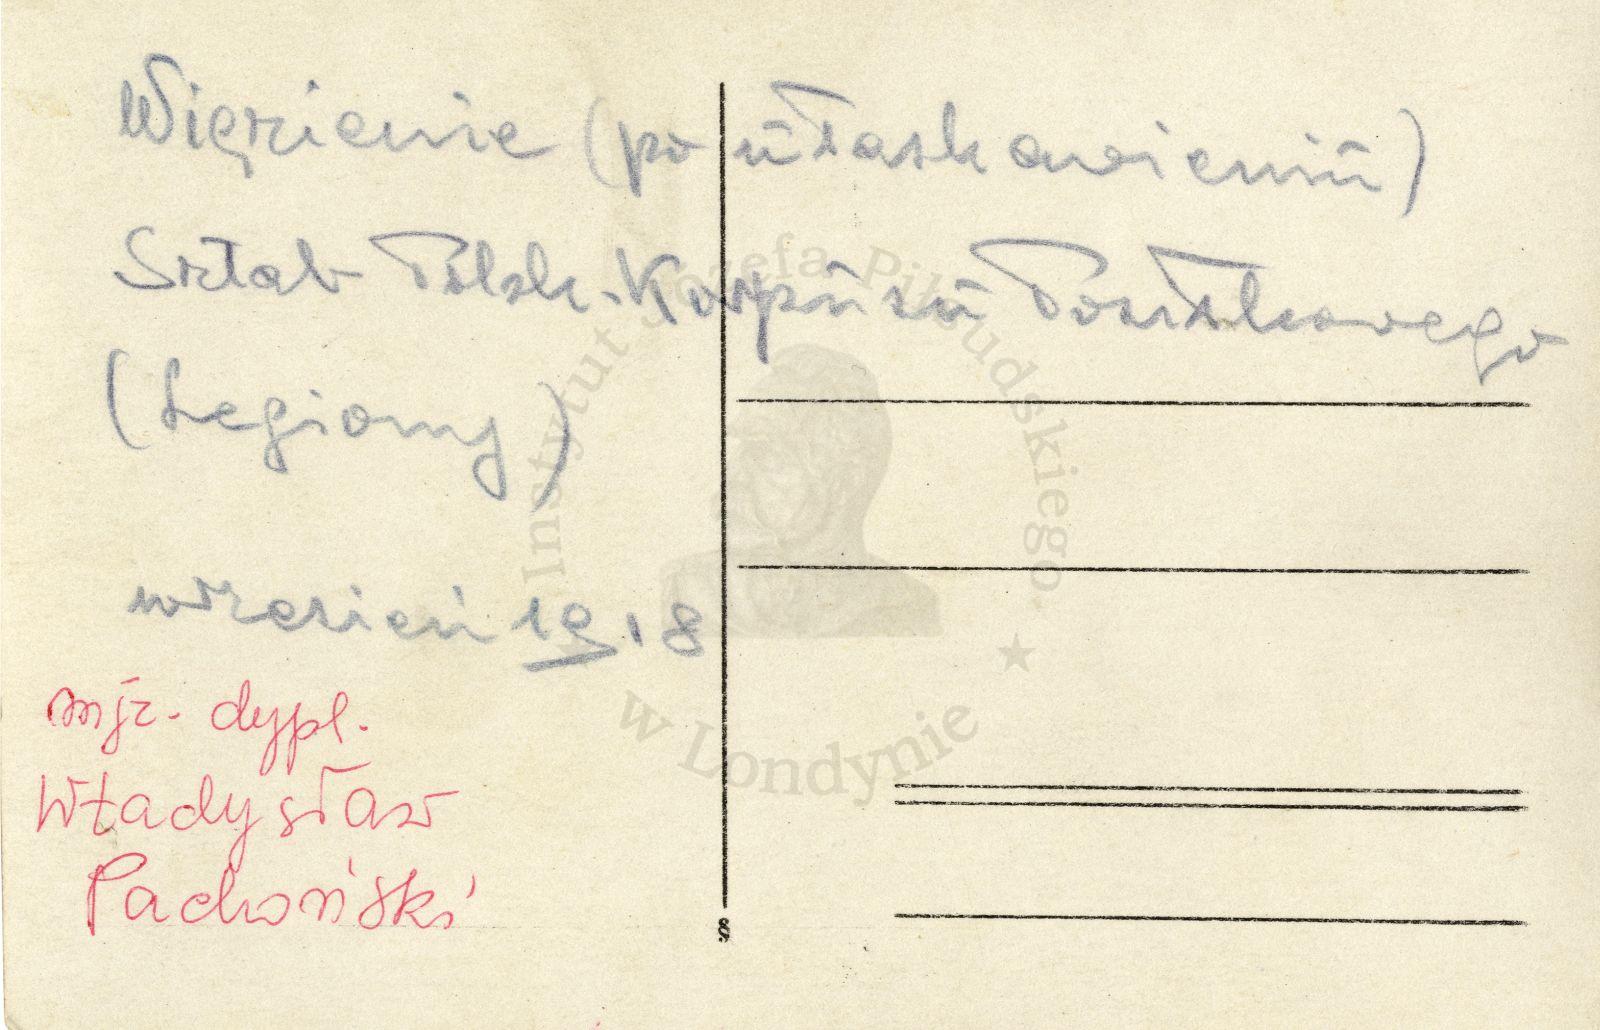 Więzienie (po ułaskawieniu)
Sztab Polsk. Korpusu Posiłkowego
(Legiony)
wrzesień 1918
mjr. dypl.
Władysław
Pachoński
8.
Instytut Józefa Piłsudskiego
w Londynie